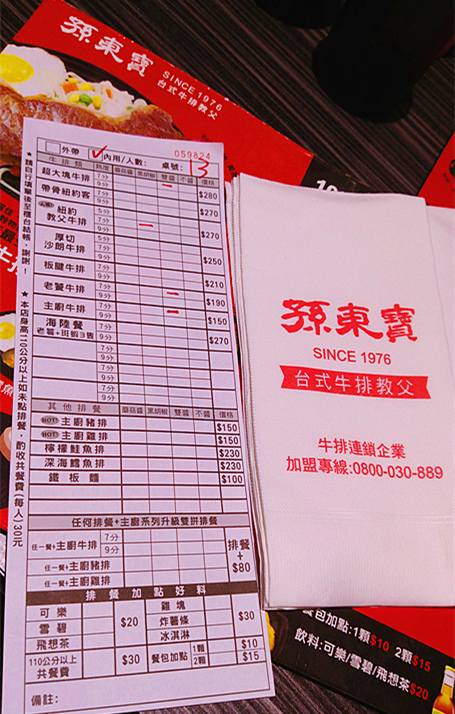 孫東寶
SINCE 1976
台式牛排教父
059824
外帶 ✓內用/人數: 桌號: 13
牛排類 熟度 蘑菇醬 黑胡椒 雙醬 不醬 價格
超大塊牛排 5分 7分 9分 $280
帶骨紐約客 5分 7分 9分 $270
紐約
教父牛排 5分 7分 9分 $270
厚切
沙朗牛排 5分 7分 9分 $250
板腱牛排 7分 9分 $210
老饕牛排 7分 9分 $190
主廚牛排 7分 9分 $150
海陸餐
老饕+斑蝦3隻 7分 9分 $270
7分
9分
7分
9分
其他排餐 蘑菇醬 黑胡椒 雙醬 不醬 價格
HOT! 主廚豬排 $150
HOT! 主廚雞排 $150
檸檬鮭魚排 $230
深海鱈魚排 $230
鐵板麵 $100
任何排餐+主廚系列升級雙拼排餐
任一餐+主廚牛排 7分 9分
任一餐+主廚豬排
任一餐+主廚雞排
排餐
+
$80
排餐加點好料
可樂 雞塊
雪碧 $20 炸薯條 $30
飛想茶 冰淇淋
110公分以上
共餐費 $30 餐包加點 1顆 $10 2顆 $15
備註:
請自行填單後至櫃台結帳,謝謝!
★本店身高110公分以上如未點排餐,酌收共餐費(每人)30元
孫東寶
SINCE 1976
台式牛排教父
牛排連鎖企業
加盟專線:0800-030-889
餐包加點:1顆$10 2顆$15
飲料:可樂/雪碧/飛想茶$20